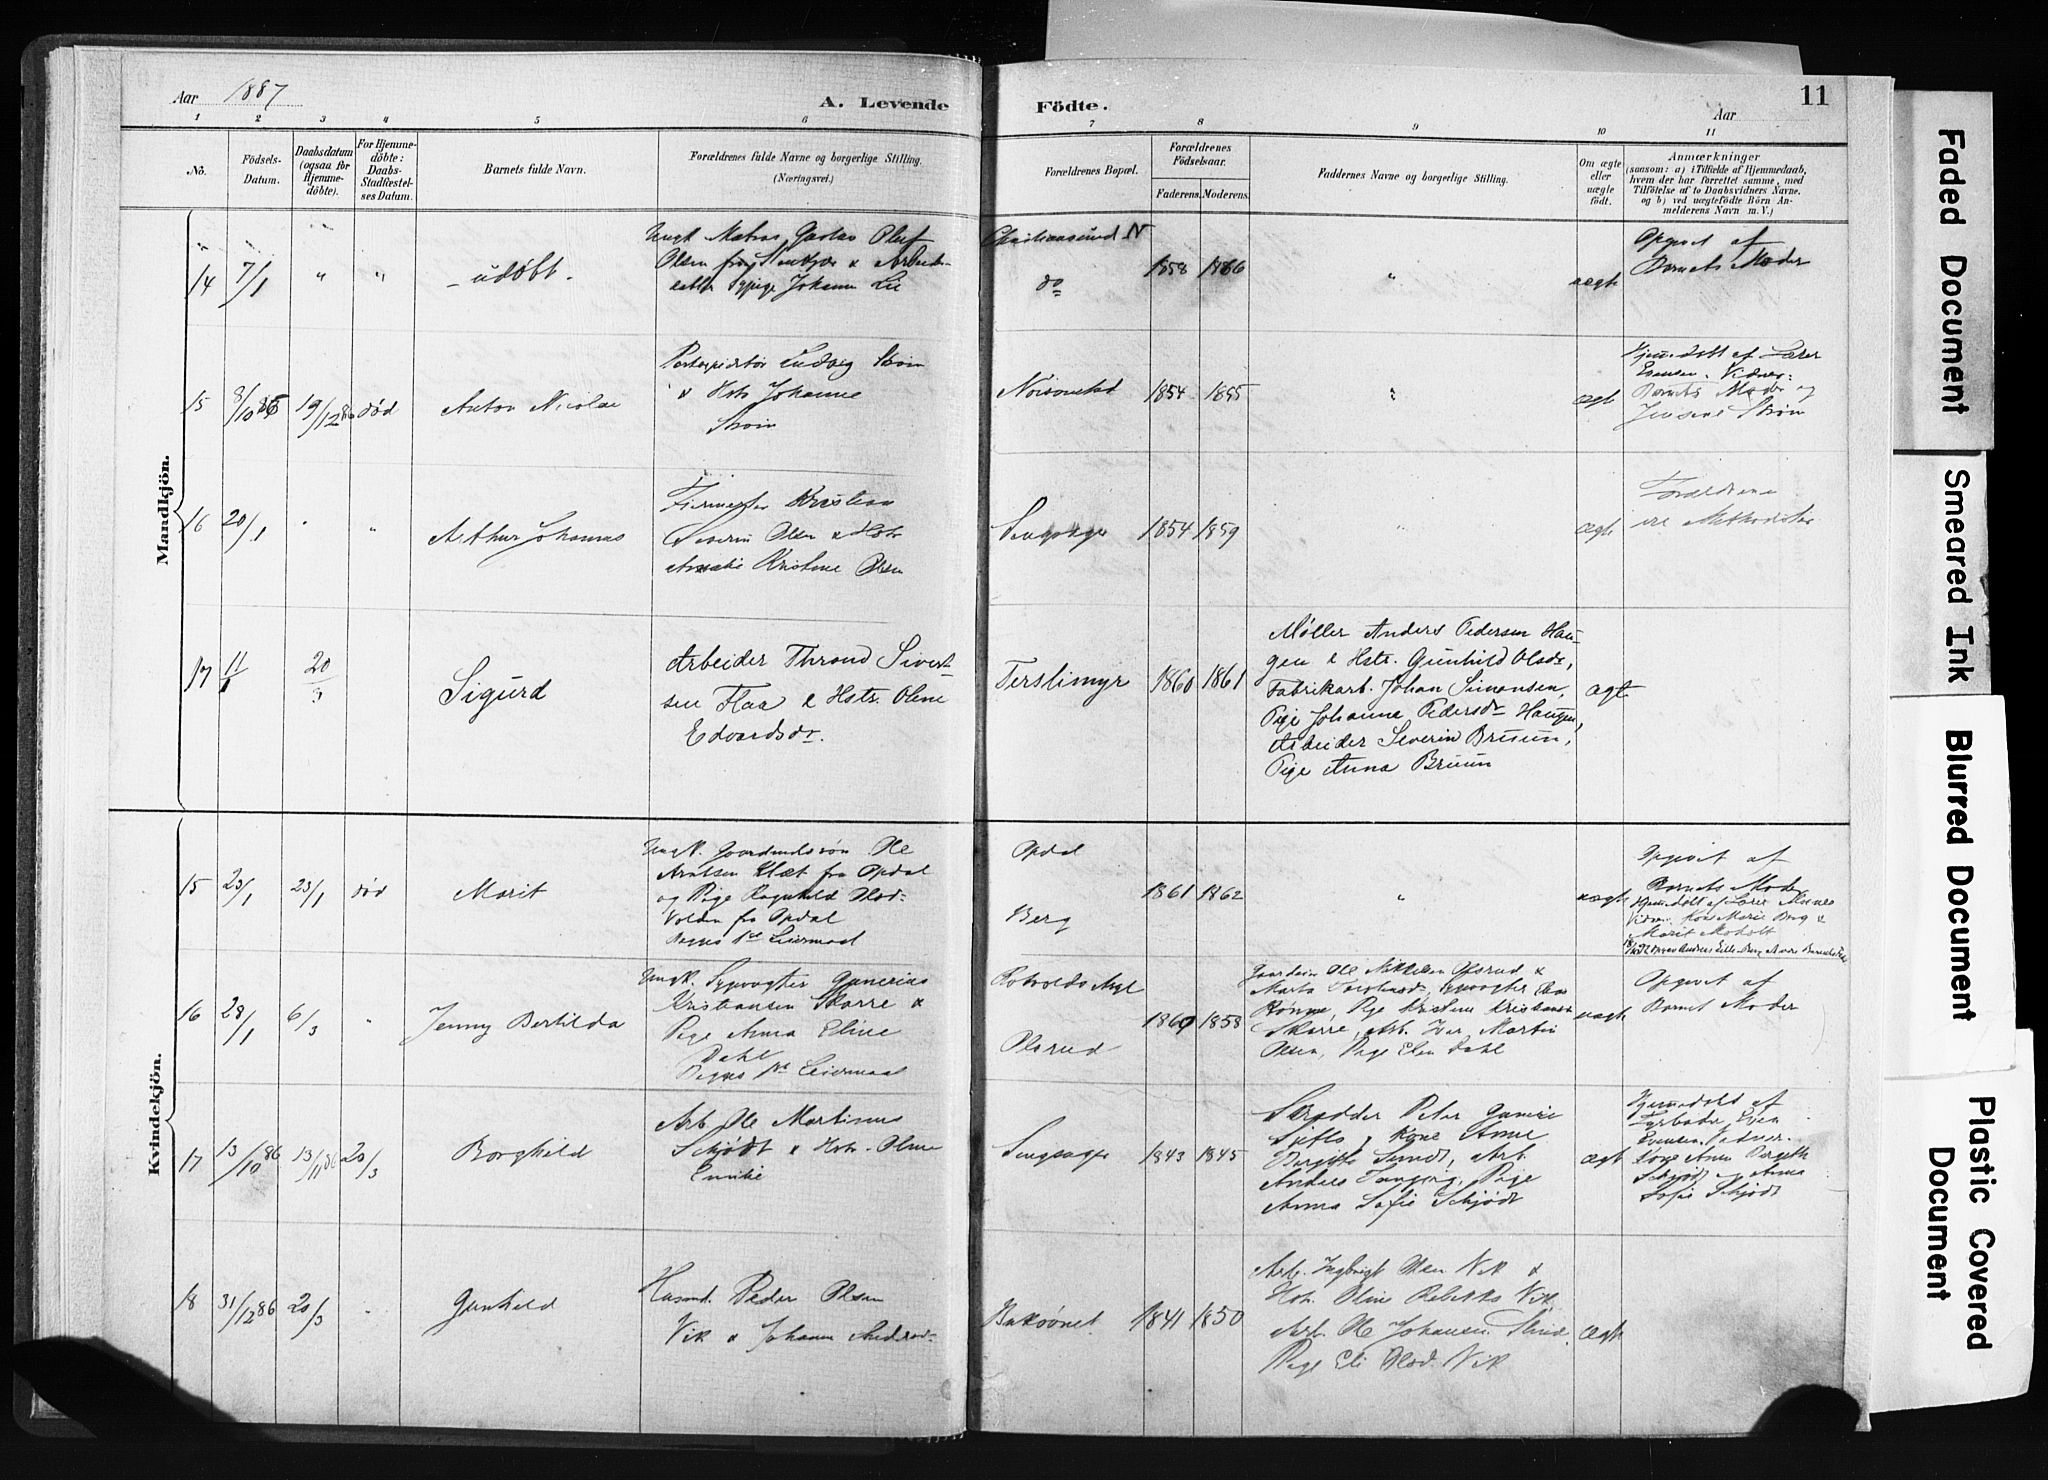 Aar 1887
A. Levende
Födte.
Aar
11
1 2 3 4 5 6 7 8 9 10 11
No.
Födsels-
Datum.
Daabsdatum
(ogsaa for
Hjemme-
döbte).
For Hjemme-
döbte:
Daabs-
Stadfæstel-
ses Datum.
Barnets fulde Navn.
Forældrenes fulde Navne og borgerlige Stilling.
(Næringsvei.)
Forældrenes Bopæl.
Forældrenes
Födselsaar.
Faderens. Moderens.
Faddernes Navne og borgerlige Stilling.
Om ægte
eller
uægte
födt.
Anmærkninger
(saasom: a) i Tilfælde af Hjemmedaab,
hvem der har forrettet samme, med
Tilföielse af to Daabsvidners Navne.
og b) ved uægtefödte Börn An-
melderens Navn m. V.)
Mandkjön.
14 7/1 " " udøbt.
Ungk. Matros Gustav Oluf
Olsen fra &
Sypige Johanna Lie
Christiansund N
do
1858 1866 " uægte
Opgivet af
Barnets Moder
15 8/10 86 19/12 86 død Anton Nicolai
Ludvig Strøm
& Hstr Johanne
Strøm
1854 1855 " ægte
Hjemmedøbt af Lærer
Evensen. Vidner:
Barnets Moder og
Strøm
16 20/1 " " Arthur Johannes
Kristian
Severin Olsen & Hstr
Amalie Kristine Olsen
Singsager 1854 1859 " ægte
Forældrene
ere Methodister
17 11/1 20/3 Sigurd
Arbeider Thrond Sivert-
sen Flaa & Hstr. Oline
Edvardsdr.
Terslimyr 1860 1861
Møller Anders Pedersen Hau-
gen & Hstr. Gunhild Olsdr,
Fabrikarb. Johan Simonsen,
Pige Johanna Pedersdr Haugen,
Arbeider Severin Bruun,
Pige Anna Bruun
ægte
Kvindekjön.
15 23/1 23/1 død Marit
Ungk. Gaardmandssøn Ole
Arntsen fra Opdal
og Pige Ragnhild Olsd.
Volden fra Opdal
Begges 1ste Leiermaal
Opdal
Berg
1861 1862 " uægte
Opgivet af
Barnets Moder
Hjemmedøbt af Lærer
Marie Berg &
Marit Moholt
16 28/1 6/3 " Jenny Bertilda
Ungk. Gunerius
Kristiansen Skarre &
Pige Anna Eline
Dahl
Begges 1ste Leiermaal
Rotvolds Asyl
Olsrud
1860 1858
Gaardm Ole Olsrud &
Marta
Rønne, Pige Kristine Kristians
Skarre, Arb. Iver Martin
Olsen, Pige Elen Dahl
uægte
Opgivet af
Barnets Moder
17 13/10 86 13/11 86 20/3 Borghild
Arb Ole Martinus
Schjødt & Hstr. Oline
Emilie
Singsager 1843 1845
Skrædder Peter
Kone Anne
Birgitte Arb.
Anders Pige
Anna Sofie Schjødt
ægte
Hjemmedøbt af
Even
Evensen. Vidner.
Kone Anne Bergitte
Schjødt Anna
Sofie Schjødt
18 31/12 86 20/3 " Gunhild
Husmd. Peder Olsen
Vik & Johanna
1841 1850
Arb. Ingbrigt Olsen Vik &
Hstr. Oline Vik,
Arb. Ole Johansen
Pige Eli Olsd. Vik
ægte
Faded Document
Smeared Ink
Blurred Document
Plastic Covered
Document